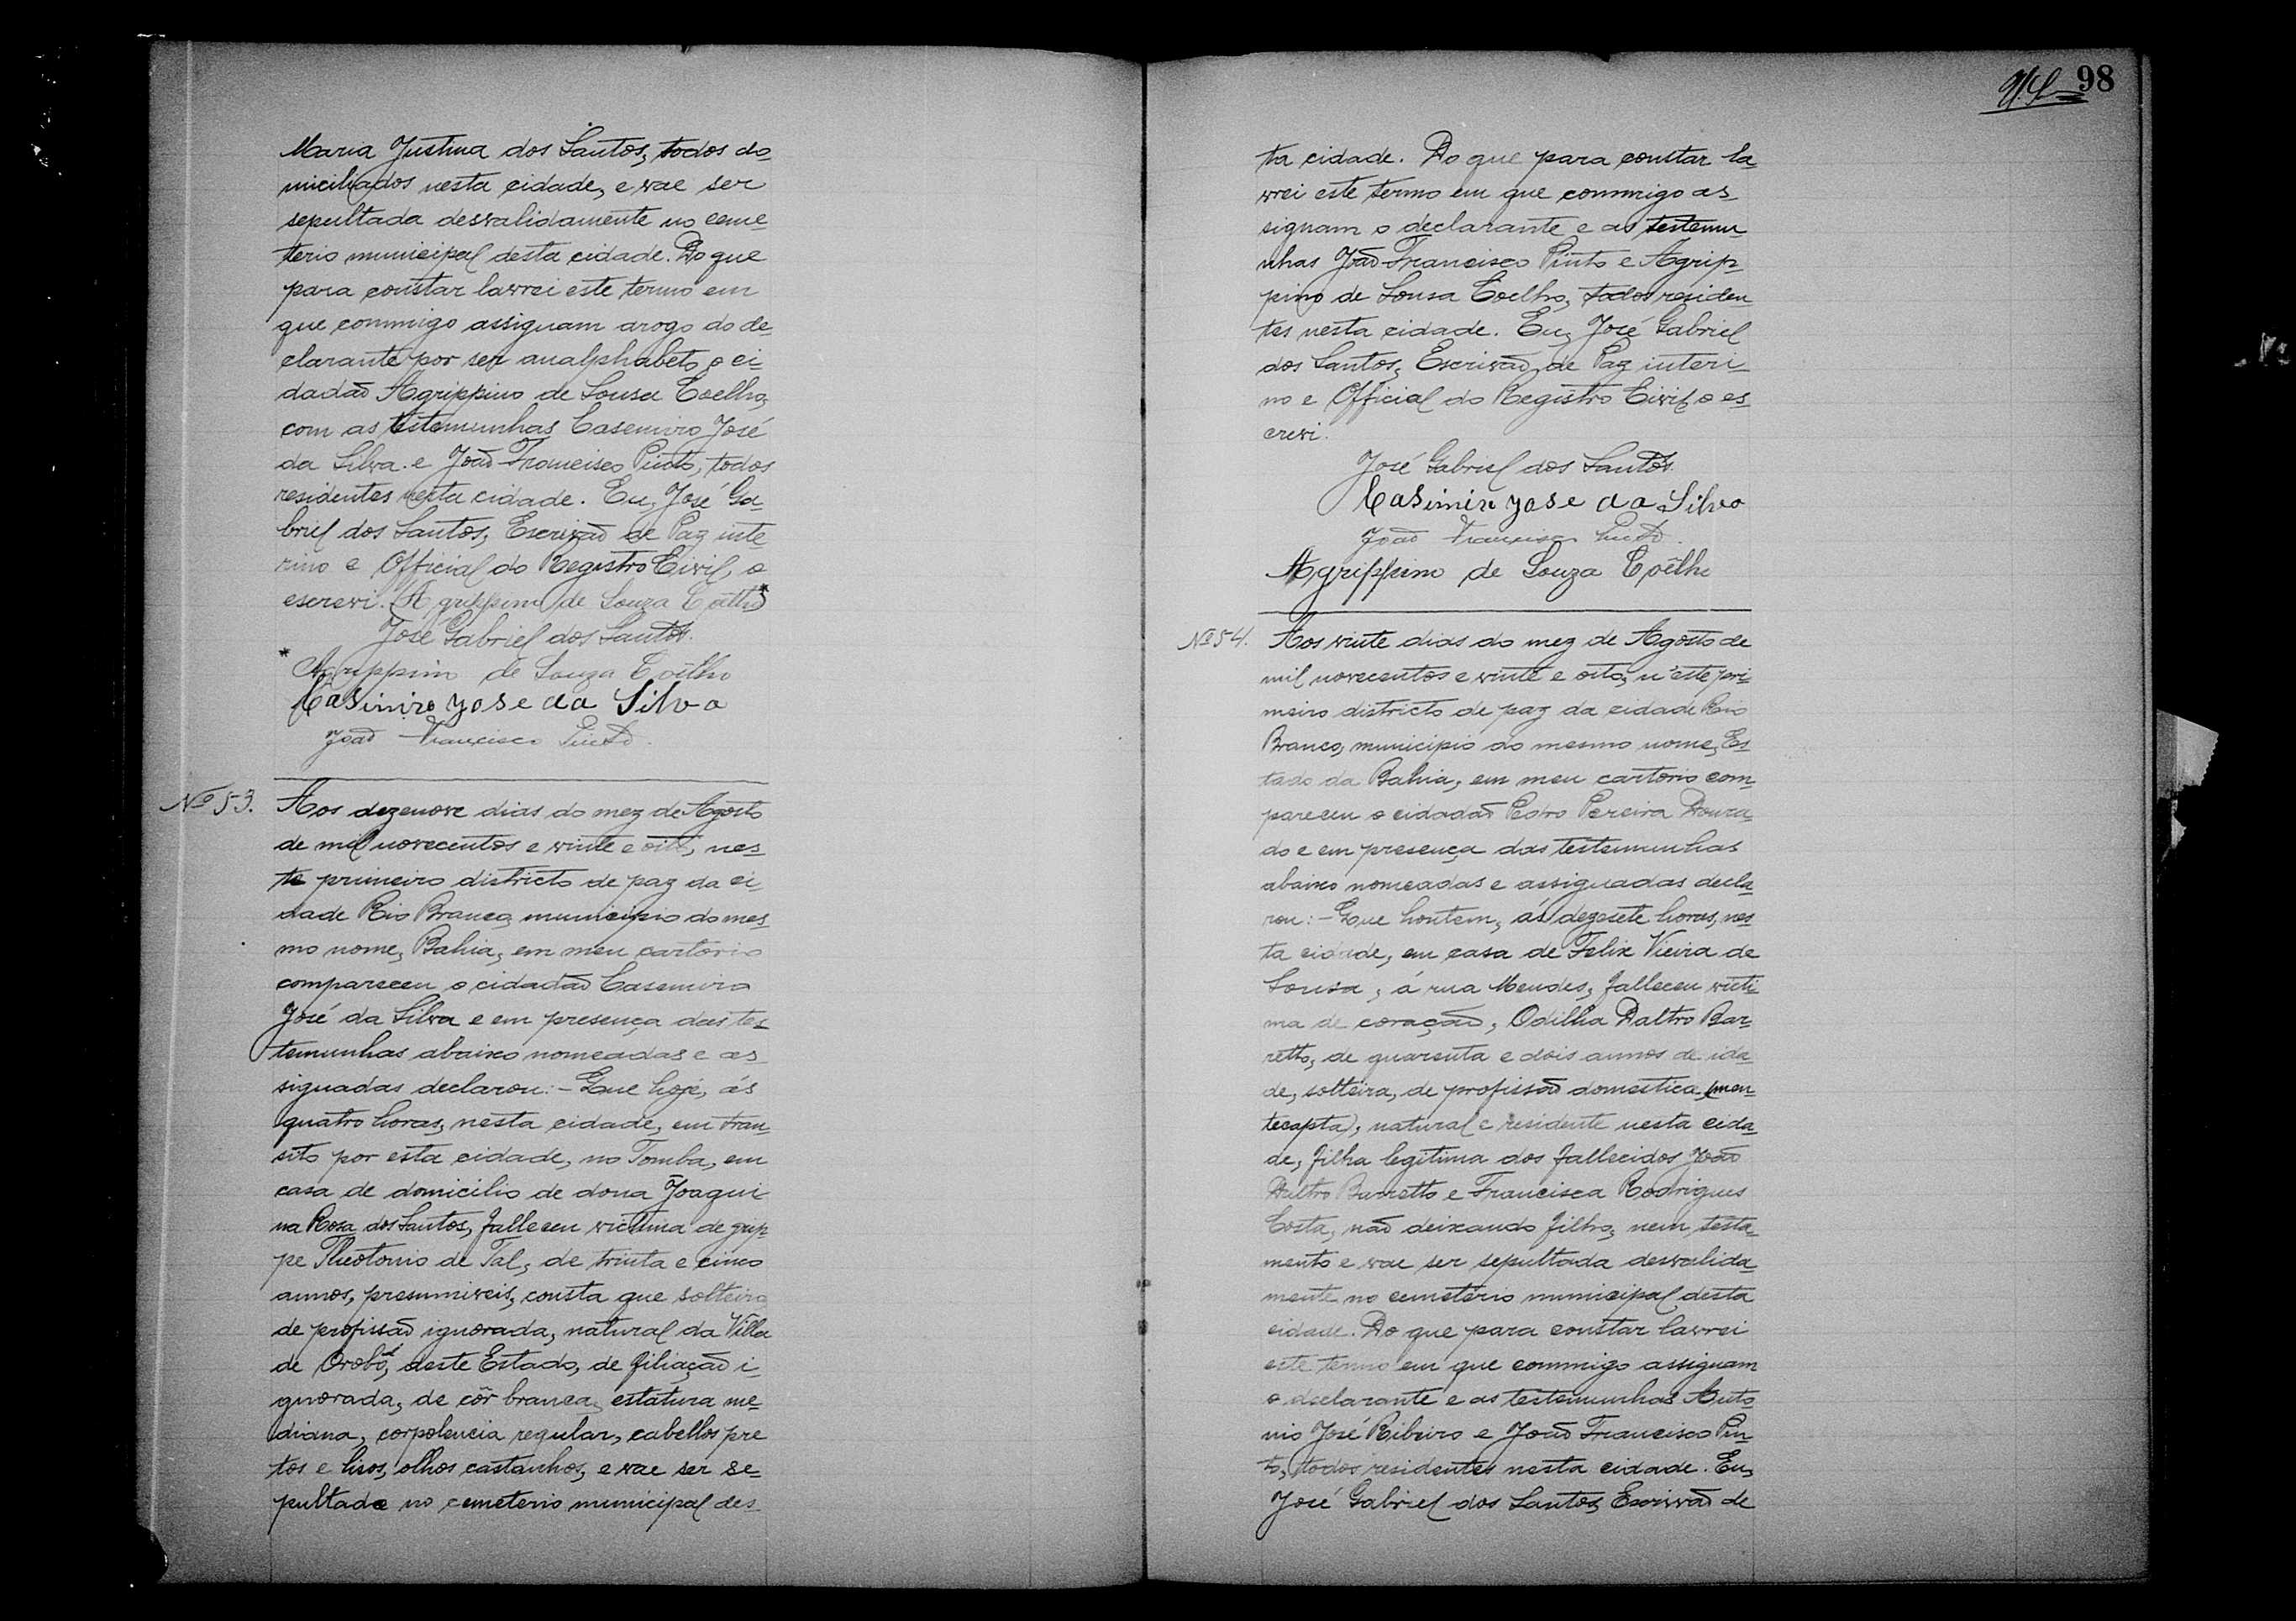 Maria Justina dos Santos, todos do-
miciliados nesta cidade, e vae ser
sepultada desvalidamente no ceme-
terio municipal desta cidade. Do que
para constar lavrei este termo em
que commigo assignam arogo do de-
clarante por ser analphabeto o ci-
dadão Agrippino de Sousa Coelho,
com as testemunhas Casemiro José
da Silva e João Francisco Pinto, todos
residentes nesta cidade. Eu, José Ga-
briel dos Santos, Escrivão de Paz inte-
rino e Official do Registro Civil, o
escrevi. Agrippino de Souza Coêlho*
José Gabriel dos Santos.
* Agrippino de Souza Coêlho
Casimiro Jose da Silva
João Francisco Pinto.
Nº 53. Aos dezenove dias do mez de Agosto
de mil novecentos e vinte e oito, nes-
te primeiro districto de paz da ci-
dade Rio Branco, municipio do mes-
mo nome, Bahia, em meu cartorio
compareceu o cidadão Casemiro
José da Silva e em presença das tes-
temunhas abaixo nomeadas e as-
signadas declarou:- Que hoje, ás
quatro horas, nesta cidade, em tran-
sito por esta cidade, no Tomba, em
casa de domicilio de dona Joaqui-
na Rosa dos Santos, falleceu victima de grip-
pe Theotonio de Tal, de trinta e cinco
annos, presumiveis, consta que solteiro
de profissão ignorada, natural da Villa
de Orobó, deste Estado, de filiação i-
gnorada, de côr branca, estatura me-
diana, corpolencia regular, cabellos pre
tos e lisos, olhos castanhos, e vae ser se-
pultado no cemeterio municipal des-
98
ta cidade. Do que para constar la-
vrei este termo em que commigo as-
signam o declarante e as testemu-
nhas João Francisco Pinto e Agrip-
pino de Sousa Coelho, todos residen
tes nesta cidade. Eu, José Gabriel
dos Santos, Escrivão de Paz interi-
no e Official do Registro Civil, o es-
crevi.
José Gabriel dos Santos.
Casimiro Jose da Silva
João Francisco Pinto.
Agrippino de Souza Coêlho
Nº 54. Aos vinte dias do mez de Agosto de
mil novecentos e vinte e oito, n'este pri-
meiro districto de paz da cidade Rio
Branco, municipio do mesmo nome, Es-
tado da Bahia, em meu cartorio com-
pareceu o cidadão Pedro Pereira Doura-
do e em presença das testemunhas
abaixo nomeadas e assignadas decla-
rou:- Que hontem, ás dezesete horas, nes-
ta cidade, em casa de Felix Vieira de
Sousa, á rua Mendes, falleceu victi-
ma de coração, Odilha Daltro Bar-
retto, de quarenta e dois annos de ida-
de, solteira, de profissão domestica (men-
tecapta), natural e residente nesta cida-
de, filha legitima dos fallecidos João
Daltro Barretto e Francisca Rodrigues
Costa, não deixando filho, nem testa-
mento e vae ser sepultada desvalida-
mente no cemeterio municipal desta
cidade. Do que para constar lavrei
este termo em que commigo assignam
o declarante e as testemunhas Anto-
nio José Ribeiro e João Francisco Pin-
to, todos residentes nesta cidade. Eu,
José Gabriel dos Santos, Escrivão de